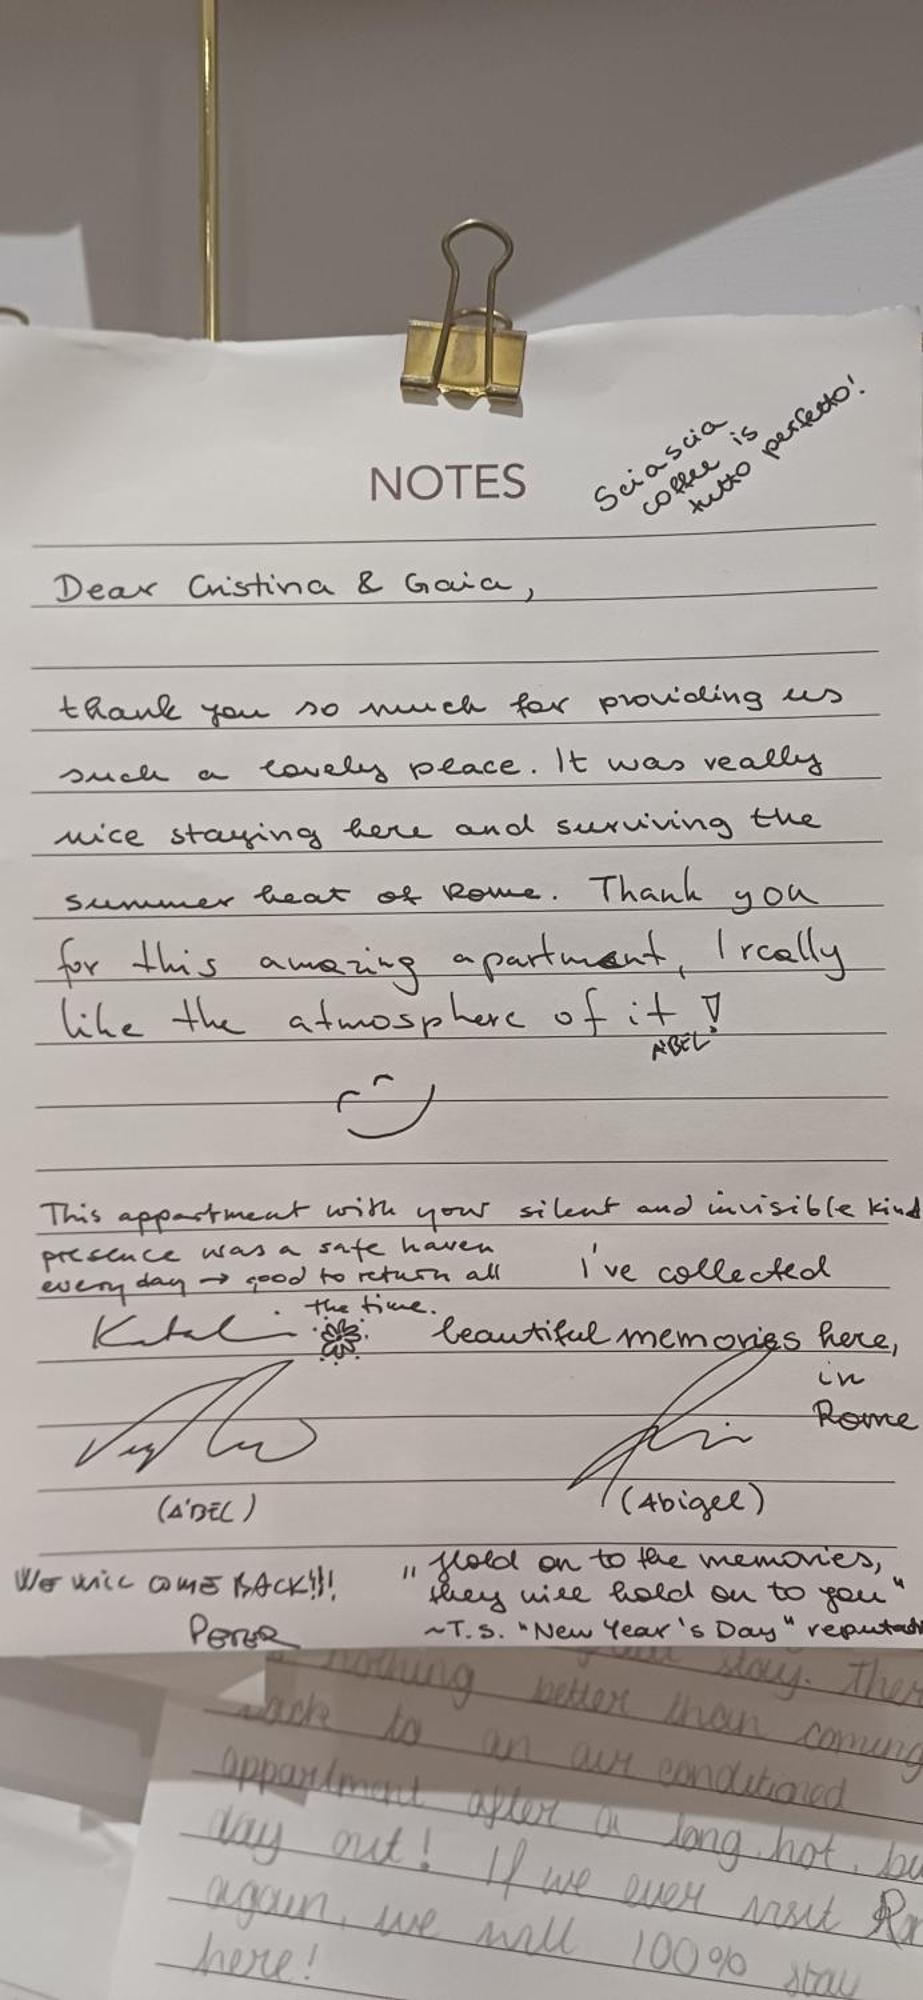 Sciascia
coffee is
tutto perfetto!
NOTES
Dear Cristina & Gaia,
thank you so much for providing us
such a lovely place. It was really
nice staying here and surviving the
summer heat of Rome. Thank you
for this amazing apartment, I really
like the atmosphere of it!
ÁBEL
This appartment with your silent and invisible kind
presence was a safe haven
every day → good to return all
the time.
I've collected
beautiful memories here,
in
Rome
(ÁBEL)
(Abigel)
WE WILL COME BACK!!!
PETER
„Hold on to the memories,
they will hold on to you"
~T.S. "New Year's Day" reputat
stay. Ther
nothing better than coming
back to an air conditioned
appartment after a long, hot, bu
day out! If we ever visit Ro
again, we will 100% stay
here!